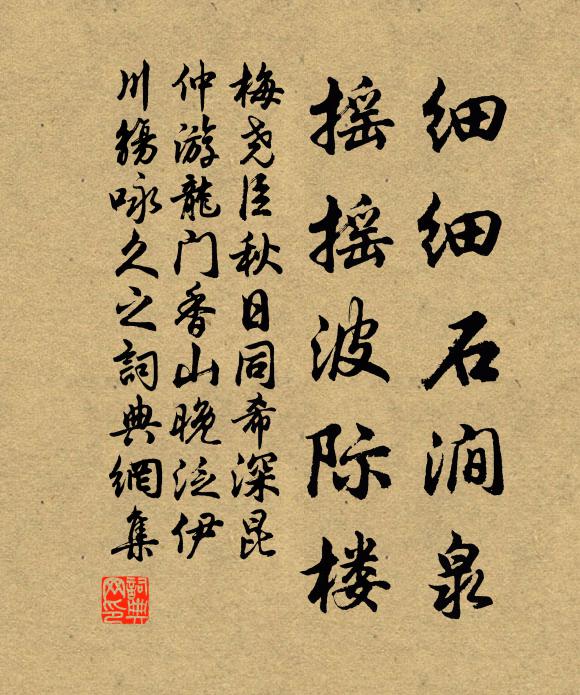 细细石涧泉
摇摇波际楼
梅尧臣秋日同希深昆
仲游龙门香山晚泛伊
川觞咏久之词典網集
詞典网印